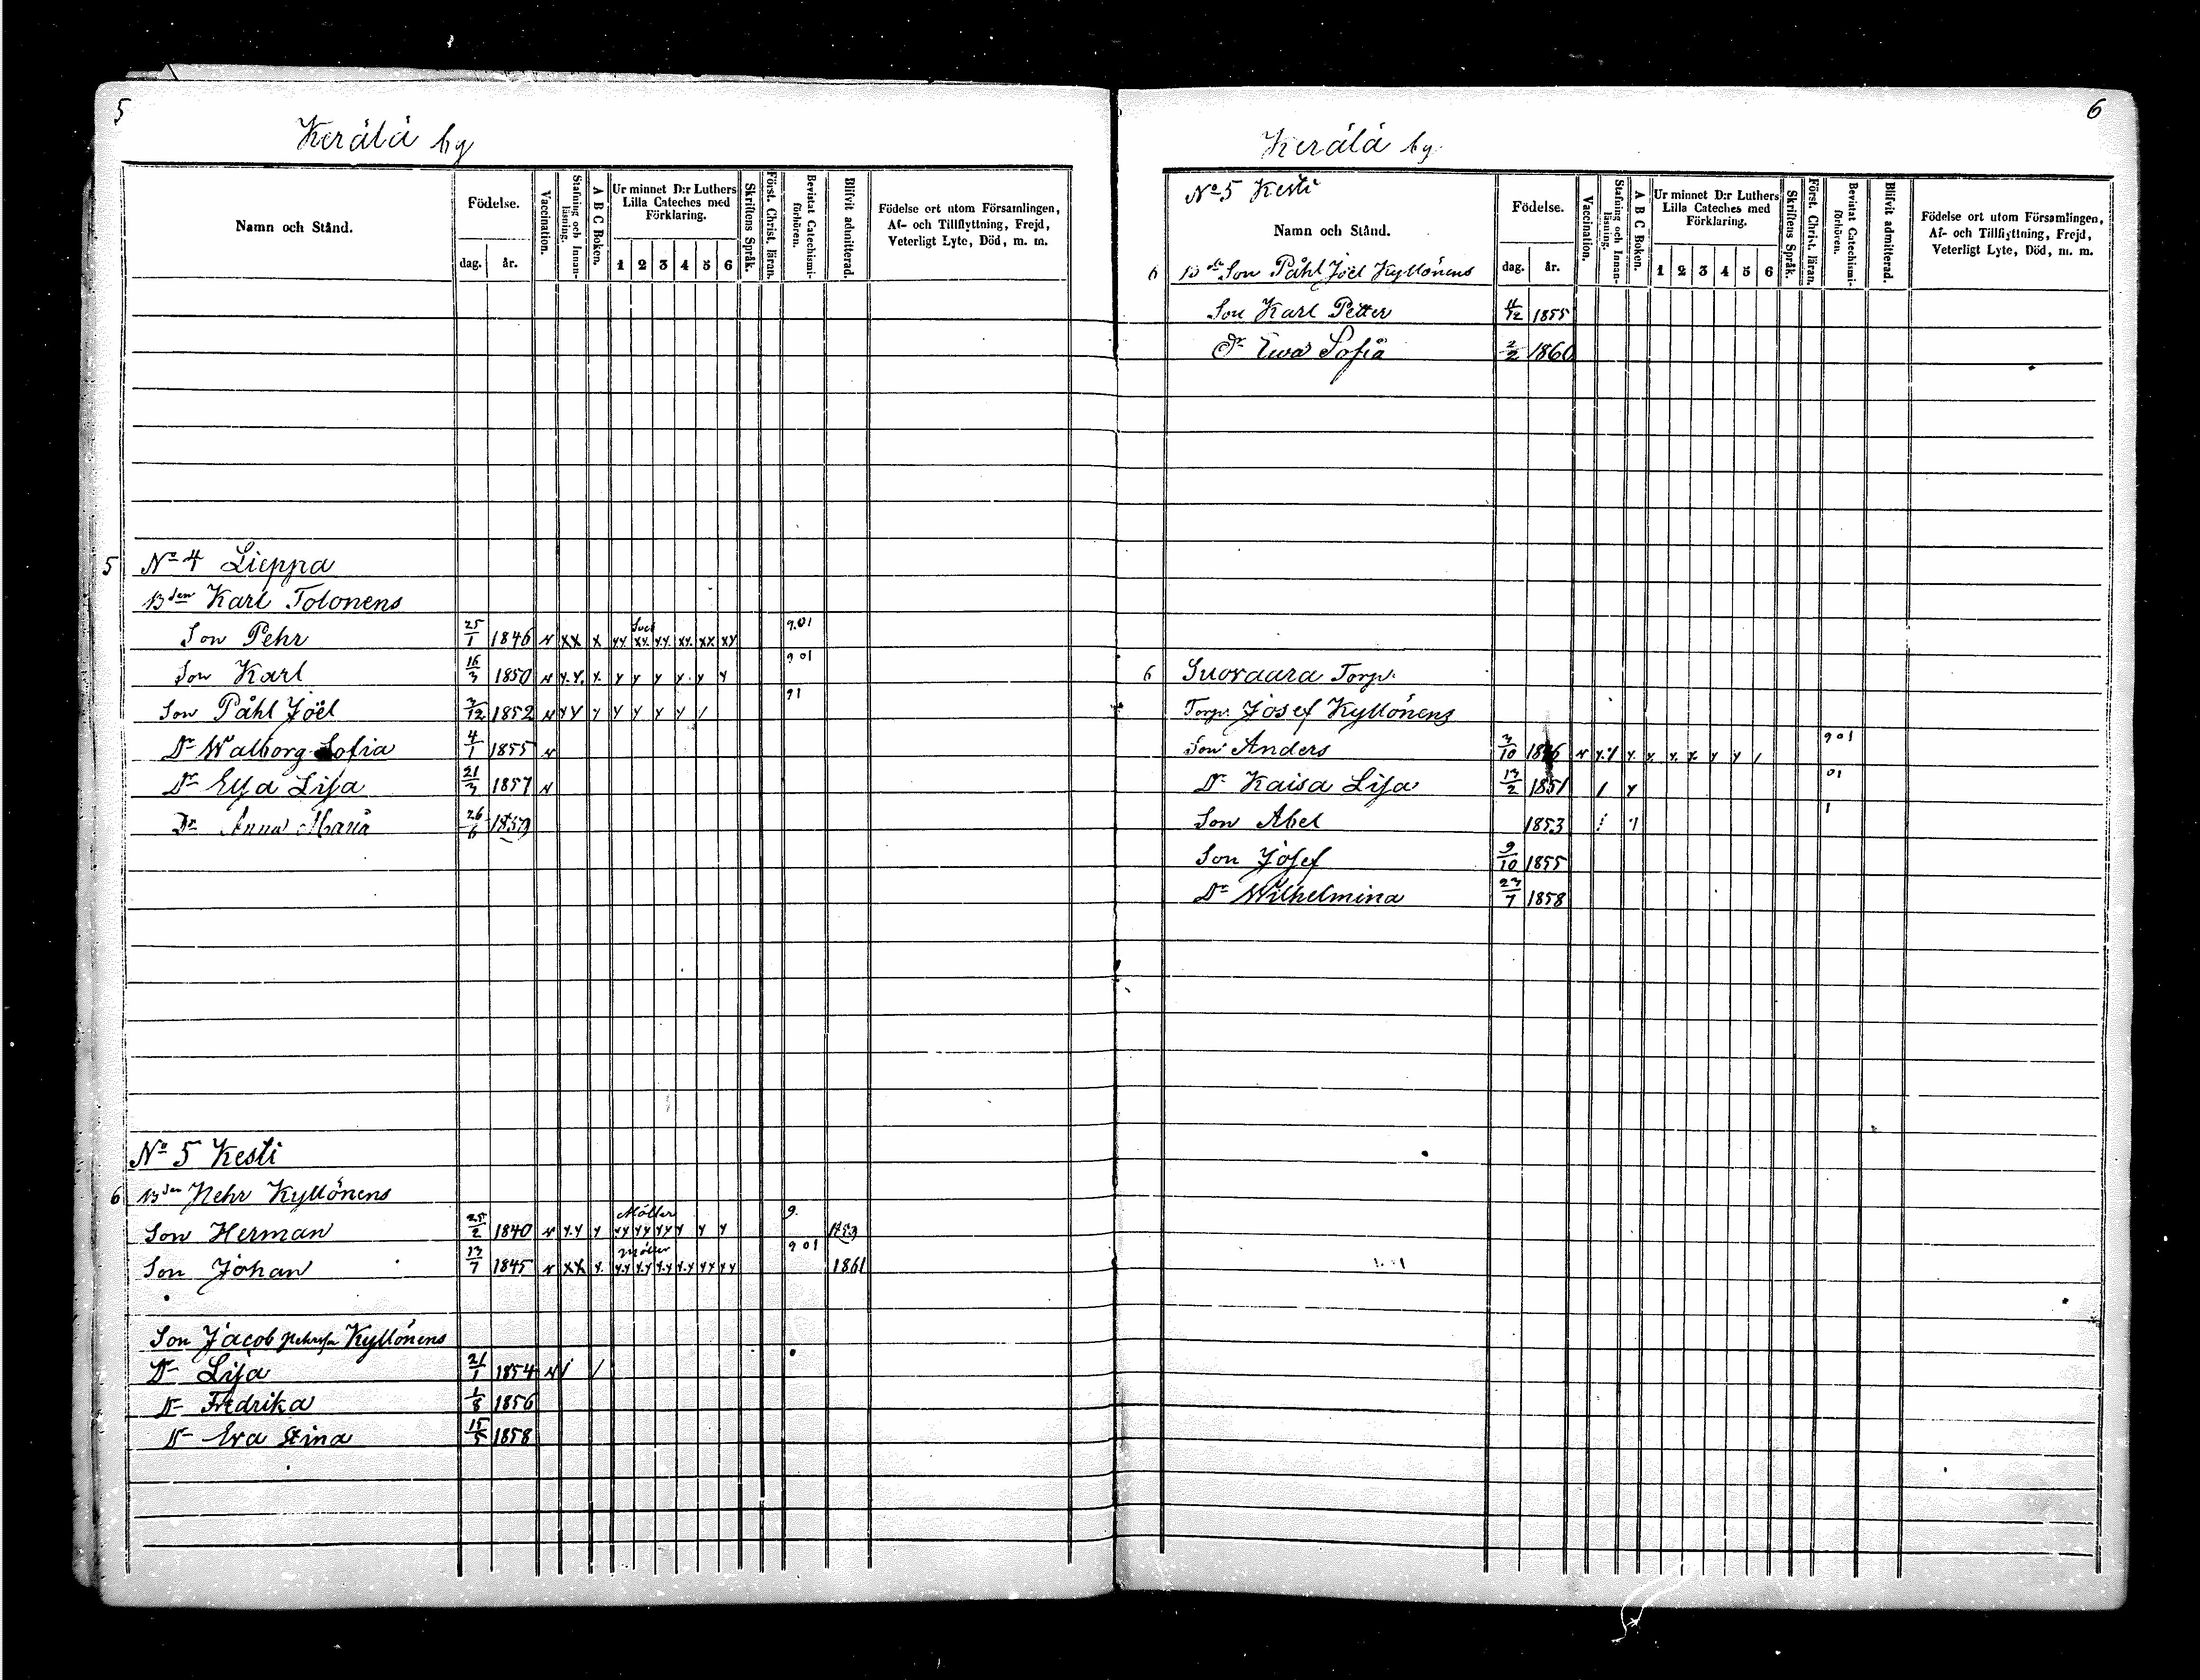 5
Kerälä by
Namn och Stånd.
Födelse.
dag.
år.
Vaccination.
Stafning och Innan-läsning.
A B C Boken.
Ur minnet D:r Luthers Lilla Cateches med Förklaring.
1 2 3 4 5 6
Skriftens Språk.
Först. Christ. läran.
Bevistat Catechismi-förhören.
Blifvit admitterad.
Födelse ort utom Församlingen,
Af- och Tillflyttning, Frejd,
Veterligt Lyte, Död, m. m.
5 No 4 Lieppa
Bden Karl Tolonens
Son Pehr 25/1 1846
Son Karl 16/3 1850
Son Påhl Joël 3/12 1852
Dr Walborg Sofia 4/1 1855
Dr Elsa Lisa 21/3 1857
Dr Anna Maria 26/6 1859
No 5 Kesti
6 Bden Pehr Kyllönens
Son Herman 25/2 1840 Möller 9. 1859
Son Johan 13/7 1845 Möller 901 1861
Son Jacob Pehrsn Kyllönens
Dr Lisa 21/1 1854
Dr Fredrika 1/8 1856
Dr Eva Stina 15/5 1858
6
Kerälä by
No 5 Kesti
Namn och Stånd.
Födelse.
dag.
år.
Vaccination.
Stafning och Innan-läsning.
A B C Boken.
Ur minnet D:r Luthers Lilla Cateches med Förklaring.
1 2 3 4 5 6
Skriftens Språk.
Först. Christ. läran.
Bevistat Catechismi-förhören.
Blifvit admitterad.
Födelse ort utom Församlingen,
Af- och Tillflyttning, Frejd,
Veterligt Lyte, Död, m. m.
6 Son Påhl Joel Kyllönens
Son Karl Petter 11/12 1855
Dr Ewa Sofia 2/2 1860
6 Suovaara Torp.
Torp. Josef Kyllönens
Son Anders 3/10 1846 901
Dr Kaisa Lisa 13/2 1851 01
Son Abel 1853 1
Son Josef 9/10 1855
Dr Wilhelmina 23/7 1858